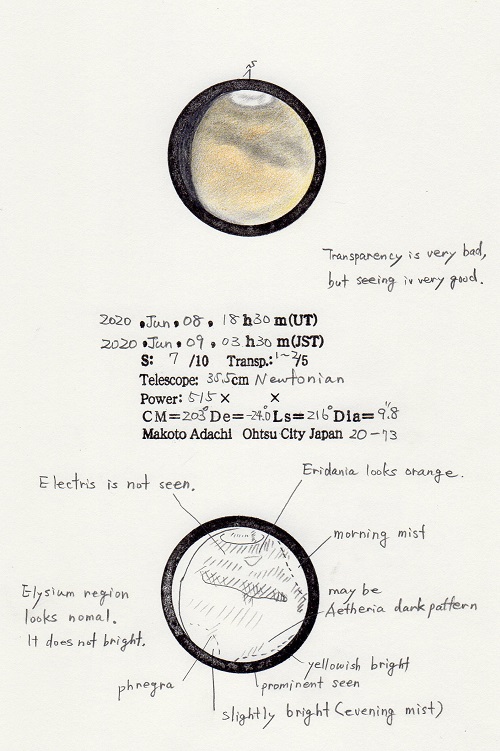 S
Transparency is very bad,
but seeing is very good.
2020 , Jun, 08, 18 h30 m(UT)
2020 , Jun, 09, 03 h30 m(JST)
S: 7 /10 Transp.: 1~2/5
Telescope: 35.5cm Newtonian
Power: 515 × ×
CM=203° De=-24.0° Ls=216° Dia=9.8"
Makoto Adachi Ohtsu City Japan 20-73
Electris is not seen.
Eridania looks orange.
morning mist
Elysium region
looks nomal.
It does not bright.
may be
Aetheria dark pattern
yellowish bright
phregra
prominent seen
slightly bright (evening mist)